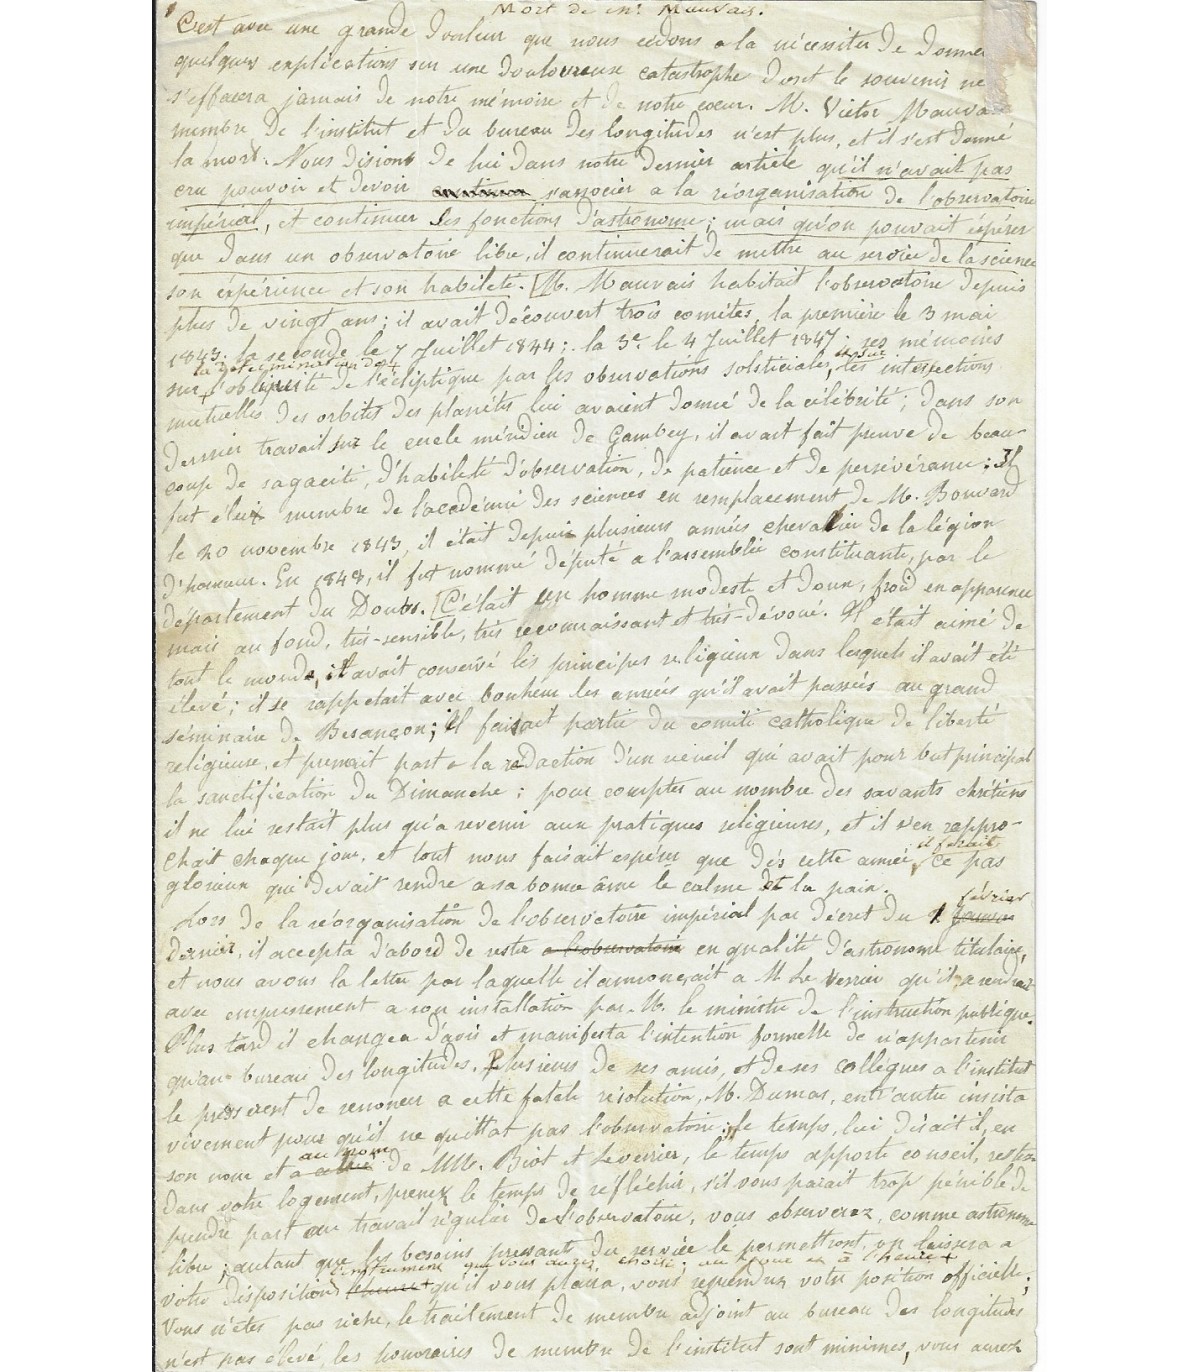 Mort de Mr Mauvais.
C'est avec une grande douleur que nous cédons a la nécessitée de donner
quelques explications sur une douloureuse catastrophe dont le souvenir ne
s'effacera jamais de notre mémoire et de notre coeur. M. Victor Mauvais
membre de l'institut et du bureau des longitudes n'est plus, et il s'est donné
la mort. Nous disions de lui dans notre dernier article qu'il n'avait pas
cru pouvoir et devoir s'associer a la réorganisation de l'observatoire
impérial, et continuer ses fonctions d'astronome; mais qu'on pouvait espérer
que dans un observatoire libre, il continuerait de mettre au service de la science
son expérience et son habileté. [M. Mauvais habitait l'observatoire depuis
plus de vingt ans; il avait découvert trois comètes, la première le 3 mai
1843; la seconde le 7 Juillet 1844; la 3e le 4 Juillet 1847; ses mémoires
la détermination de et sur
sur l'obliquité de l'écliptique par les observations solsticiales, les intersections
mutuelles des orbites des planètes lui avaient donné de la célébrité; dans son
dernier travail sur le cercle méridien de Gambey, il avait fait preuve de beau-
coup de sagacité, d'habileté d'observation, de patience et de persévérance: Il
fut élu membre de l'académie des sciences en remplacement de M. Bouvard
le 20 novembre 1843, il était depuis plusieurs années chevalier de la légion
d'honneur. En 1848, il fut nommé député a l'assemblée constituante, par le
département du Doubs. [C'était un homme modeste et doux, froid en apparence
mais au fond, très-sensible, très reconnaissant et très-dévoué. Il était aimé de
tout le monde, il avait conservé les principes religieux dans lesquels il avait été
élevé; il se rappelait avec bonheur les années qu'il avait passées au grand
séminaire de Besançon; Il faisait partie du comité catholique de liberté
religieuse, et prenait part a la rédaction d'un recueil qui avait pour but principal
la sanctification du Dimanche; pour compter au nombre des savants chrétiens
il ne lui restait plus qu'a revenir aux pratiques religieuses, et il s'en rappro-
chait chaque jour, et tout nous faisait espérer que dès cette année il ferait ce pas
glorieux qui devait rendre a sa bonne âme le calme et la paix.
Lors de la réorganisation de l'observatoire impérial par décret du 1 février janvier
dernier, il accepta d'abord de rester a l'observatoire en qualité d'astronome titulaire,
et nous avons la lettre par laquelle il annonçait a M Le Verrier qu'il se rendrait
avec empressement a son installation par M. le ministre de l'instruction publique.
Plus tard il changea d'avis et manifesta l'intention formelle de n'appartenir
qu'au bureau des longitudes. Plusieurs de ses amis, et de ses collègues a l'institut
le pressèrent de renoncer a cette fatale résolution, M. Dumas, entr'autre insista
vivement pour qu'il ne quittat pas l'observatoire; le temps, lui disait il, en
son nom et au nom de MM. Biot et Leverrier, le temps apporte conseil, restez
dans votre logement, prenez le temps de réfléchir, s'il vous parait trop pénible de
prendre part au travail régulier de l'observatoire, vous observerez, comme astronome
libre; autant que les besoins pressants du service le permettront, on laissera a
l'instrument que vous aurez choisi; au jour et à l'heure
votre disposition qu'il vous plaira, vous reprendrez votre position officielle;
Vous n'êtes pas riche, le traitement de membre adjoint au bureau des longitudes
n'est pas élevé, les honoraires de membre de l'institut sont minimes, vous aurez